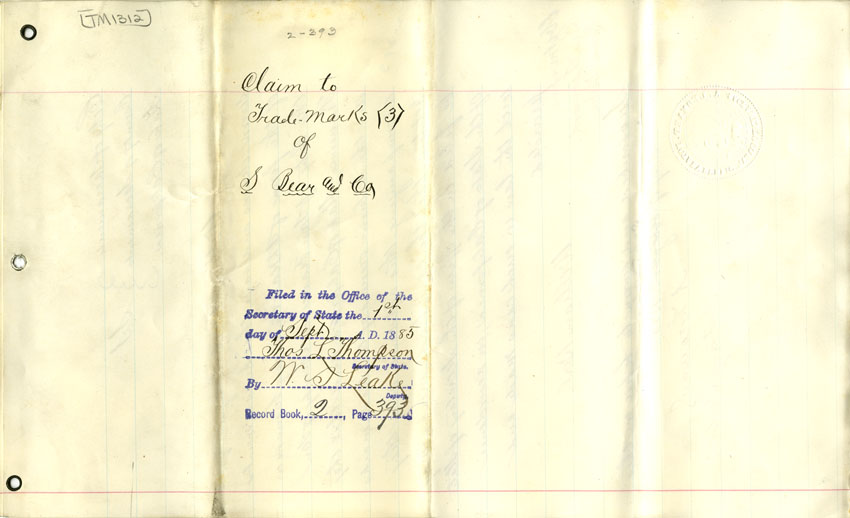 TM1312
2-393
Claim to
Trade-Marks (3)
of
S Bear and Co,
Filed in the Office of the
Secretary of State the 1st
day of Sept A. D. 1885
Thos L Thompson
Secretary of State.
By W T Leake
Deputy.
Record Book, 2, Page 393